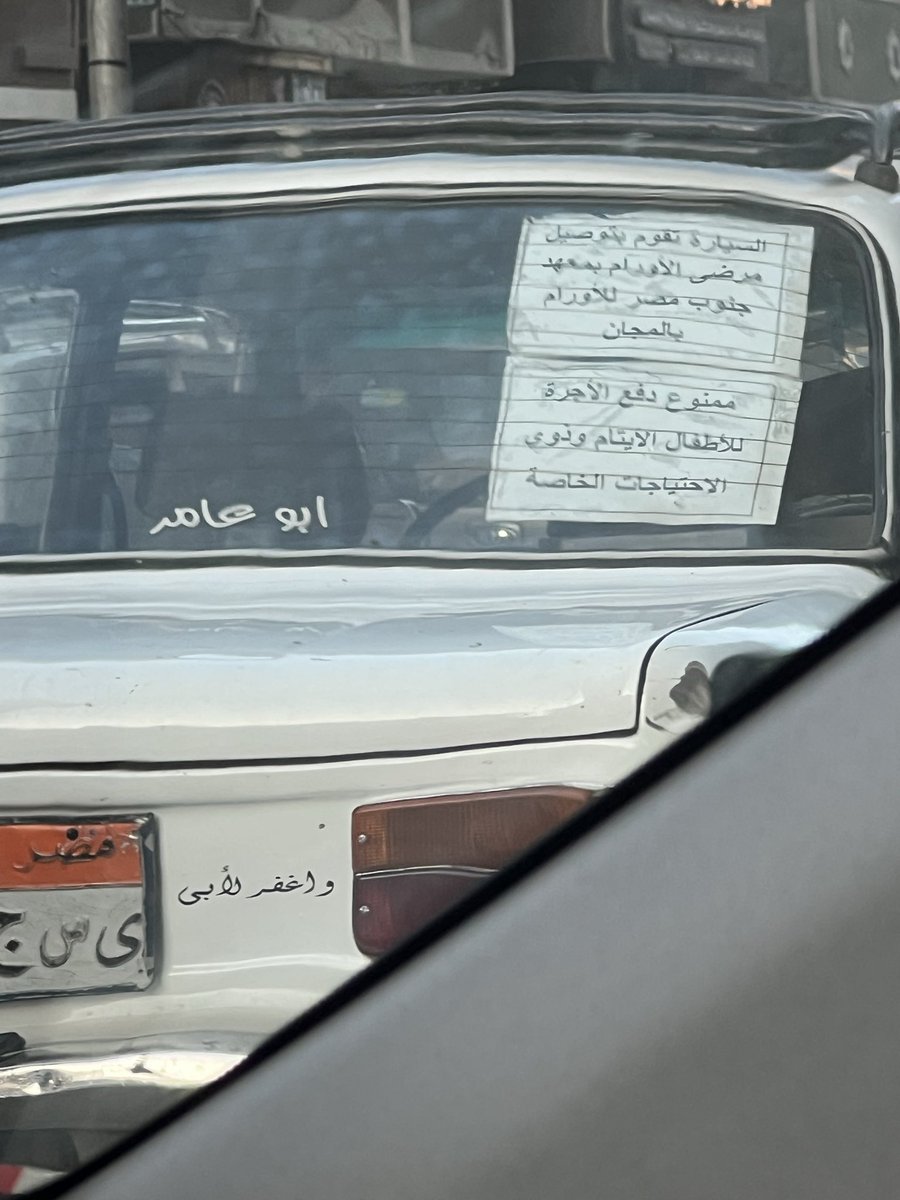 السيارة تقوم بتوصيل
مرضى الأورام بمعهد
جنوب مصر للأورام
بالمجان
ممنوع دفع الأجرة
للأطفال الايتام وذوي
الاحتياجات الخاصة
ابو عامر
واغفر لأبى
مصر
ى س ج